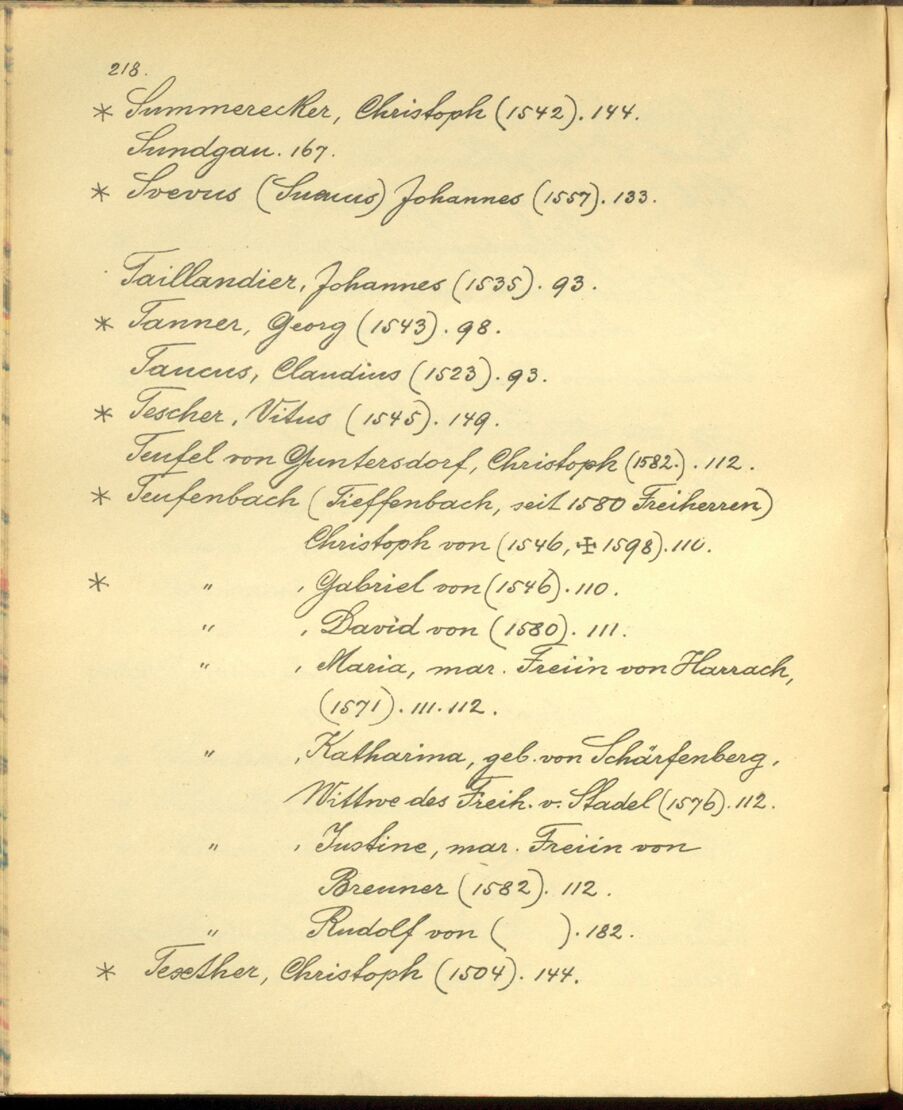 218.
* Summerecker, Christoph (1542). 144.
Sundgau. 167.
* Svevus (Suevus) Johannes (1557). 133.
Taillandier, Johannes (1535). 93.
* Tanner, Georg (1543). 98.
Taucus, Claudius (1523). 93.
* Tescher, Vitus (1545). 149.
Teufel von Guntersdorf, Christoph (1582.). 112.
* Teufenbach (Tieffenbach, seit 1580 Freiherren)
Christoph von (1546, ✠ 1598). 110.
* " , Gabriel von (1546). 110.
" , David von (1580). 111.
" , Maria, mar. Freiin von Harrach,
(1571). 111. 112.
" , Katharina, geb. von Schärfenberg,
Wittwe des Freih. v. Stadel (1576). 112.
" , Justine, mar. Freiin von
Breuner (1582). 112.
" Rudolf von ( ). 182.
* Texther, Christoph (1504). 144.